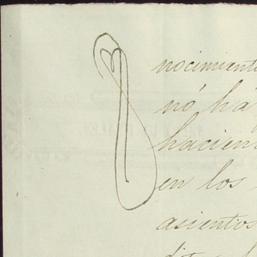 nocimiento
nó há
hacien
en los
asientos